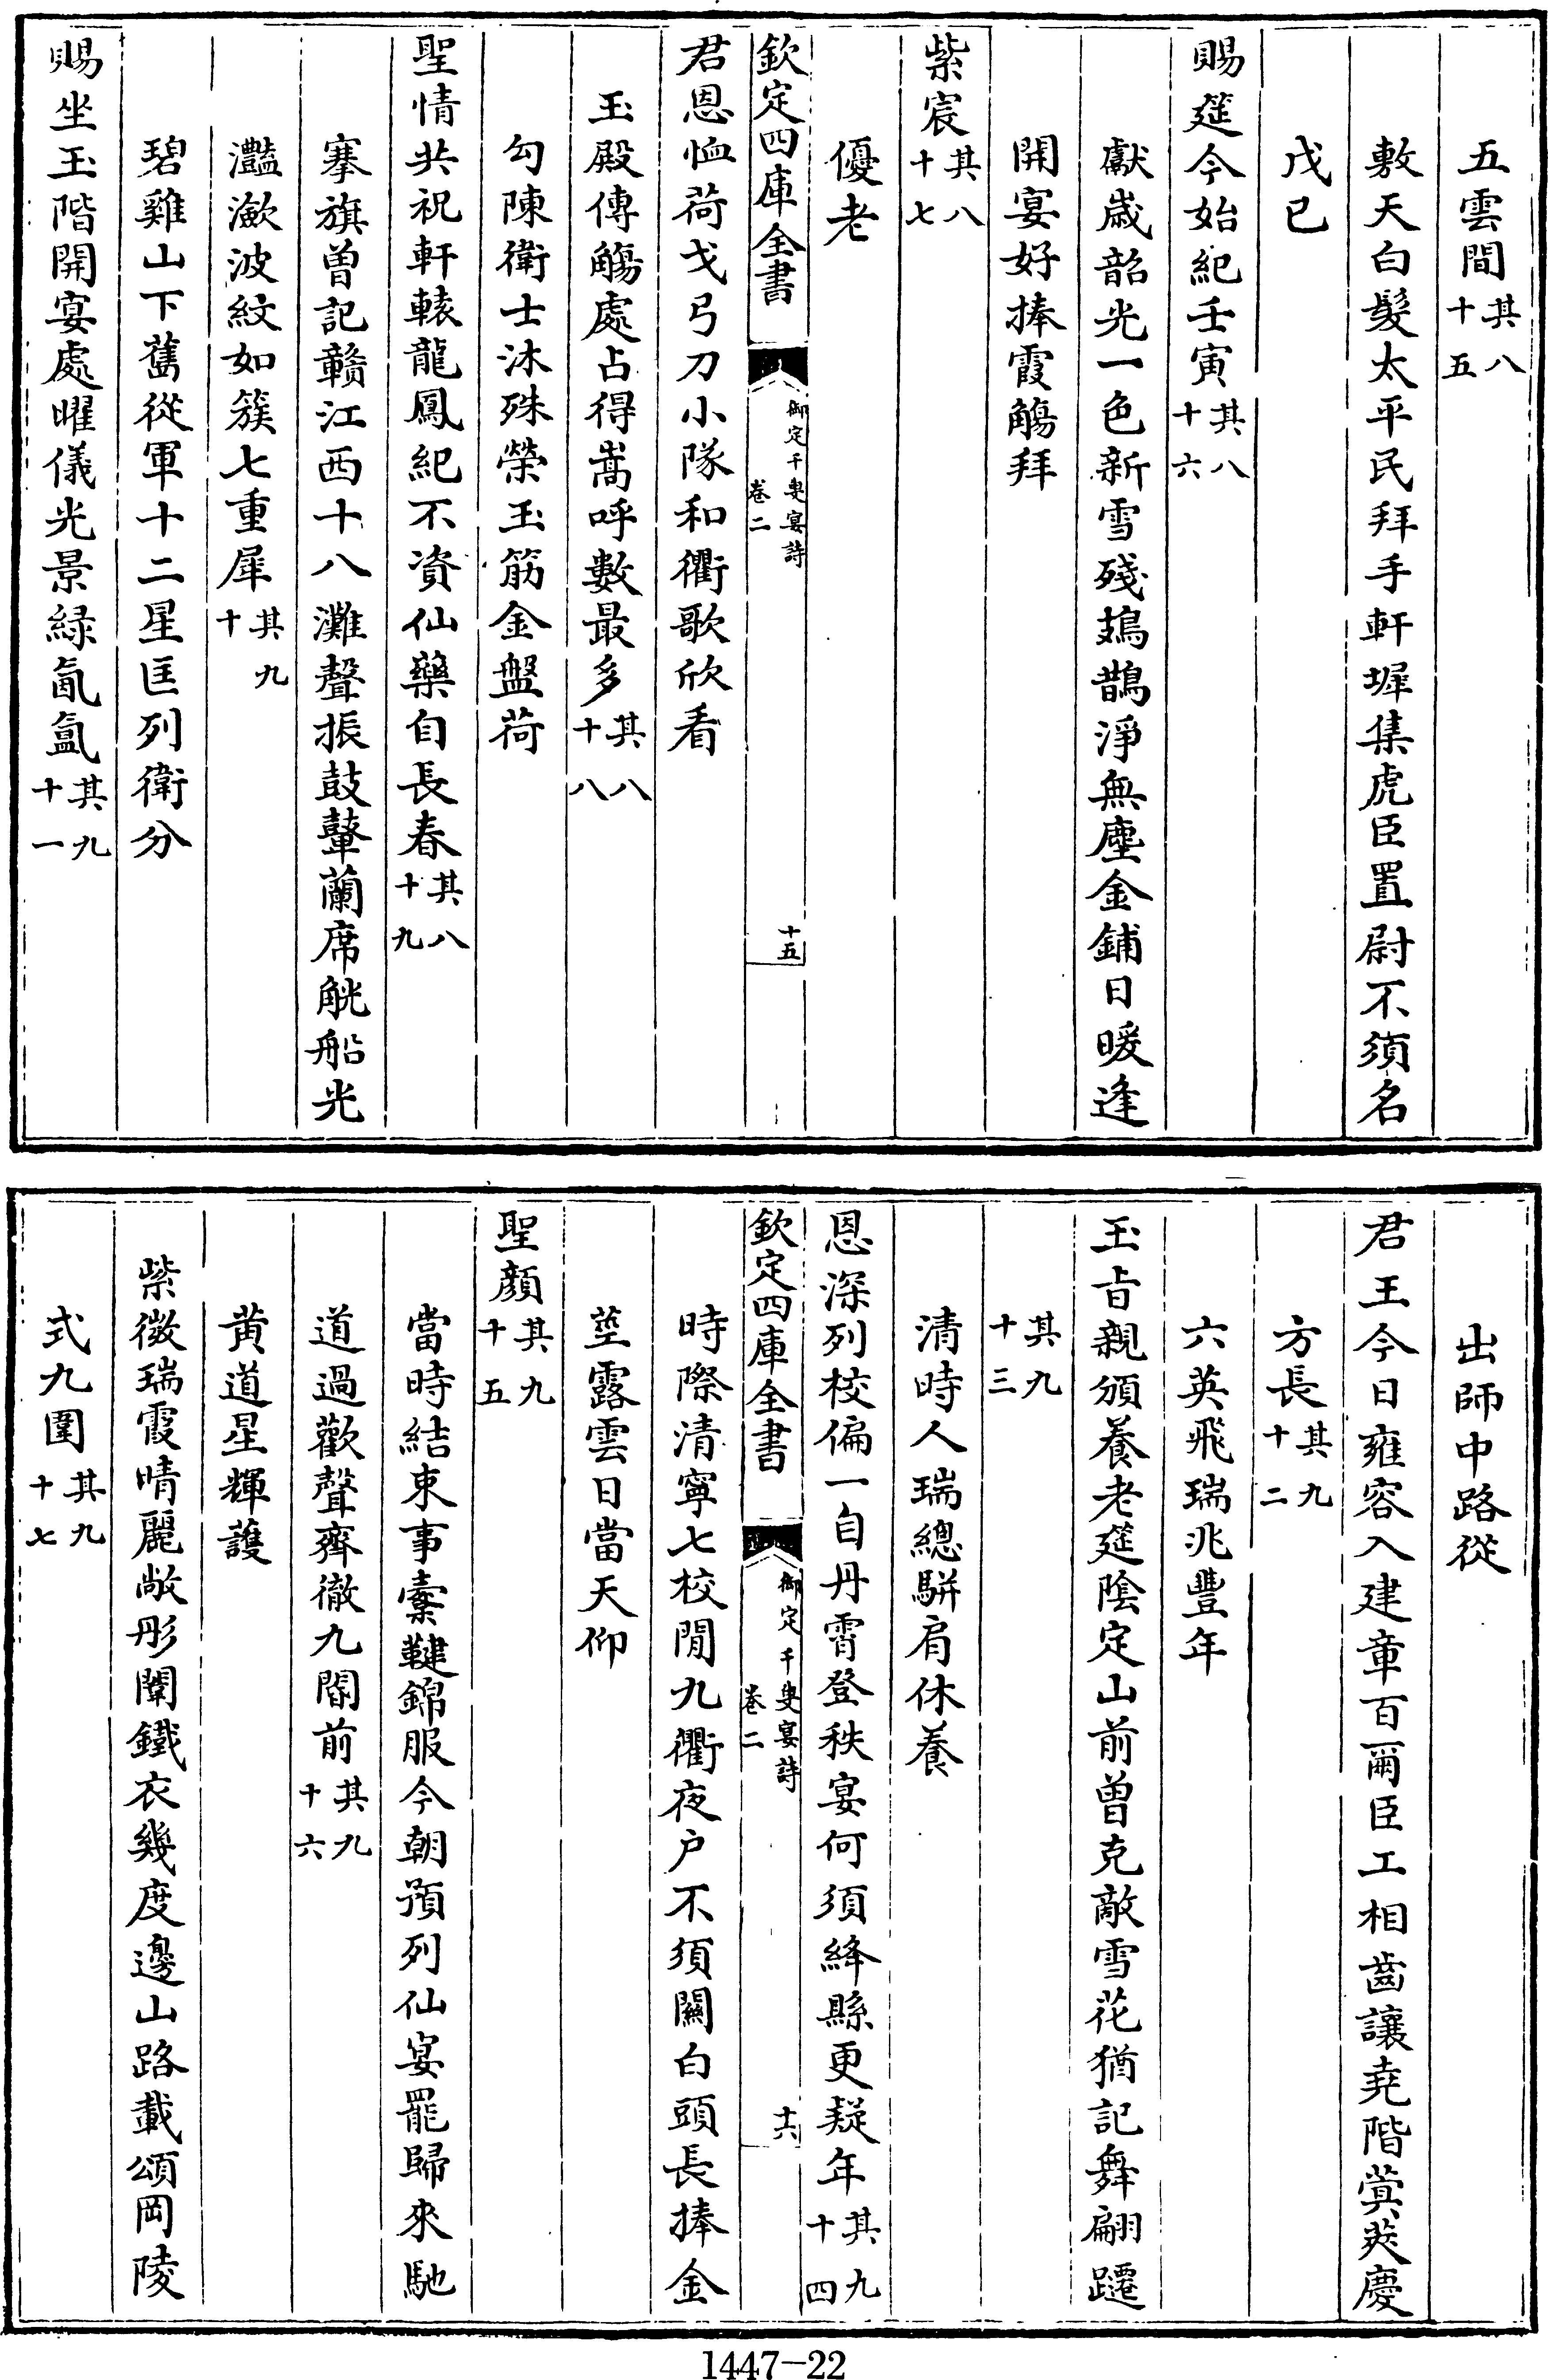 五雲間其八十五
敷天白髮太平民拜手軒墀集虎臣置尉不須名
戊已
賜筵今始紀壬寅其八十六
獻歲韶光一色新雪殘鳷鵲淨無塵金鋪日暖逢
開宴好捧霞觴拜
紫宸其八十七
優老
欽定四庫全書 御定千叟宴詩 卷二 十五
君恩恤荷戈弓刀小隊和衢歌欣看
玉殿傳觴處占得嵩呼數最多其八十八
勾陳衛士沐殊榮玉筯金盤荷
聖情共祝軒轅龍鳳紀不資仙藥自長春其八十九
搴旗曾記贛江西十八灘聲振鼓鼙蘭席觥船光
灩瀲波紋如簇七重犀其九十
碧雞山下舊從軍十二星匡列衛分
賜坐玉階開宴處曜儀光景綠氤氳其九十一
出師中路從
君王今日雍容入建章百爾臣工相齒讓堯階蓂莢慶
方長其九十二
六英飛瑞兆豐年
玉旨親頒養老筵陰定山前曾克敵雪花猶記舞翩躚
其九十三
清時人瑞總駢肩休養
恩深列校偏一自丹霄登秩宴何須絳縣更疑年其九十四
欽定四庫全書 御定千叟宴詩 卷二 十六
時際清寧七校閒九衢夜户不須關白頭長捧金
莖露雲日當天仰
聖顔其九十五
當時結束事櫜鞬錦服今朝預列仙宴罷歸來馳
道過歡聲齊徹九閽前其九十六
黄道星輝護
紫微瑞霞晴麗敞彤闈鐵衣幾度邊山路載頌岡陵
式九圍其九十七
1447-22